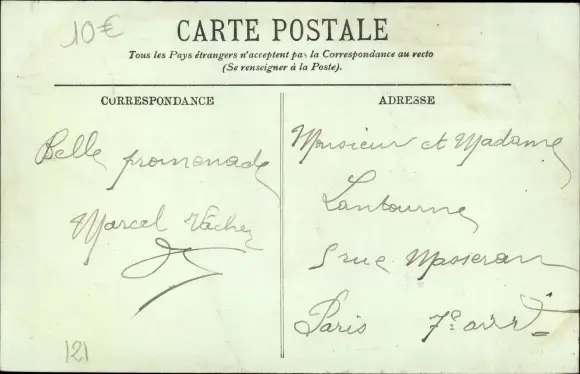 10€
CARTE POSTALE
Tous les Pays étrangers n'acceptent pas la Correspondance au recto
(Se renseigner à la Poste).
CORRESPONDANCE
ADRESSE
Belle promenade
Marcel Vacher
Monsieur et Madame
Lantourne
5 rue Masseran
Paris 7e arrt
121